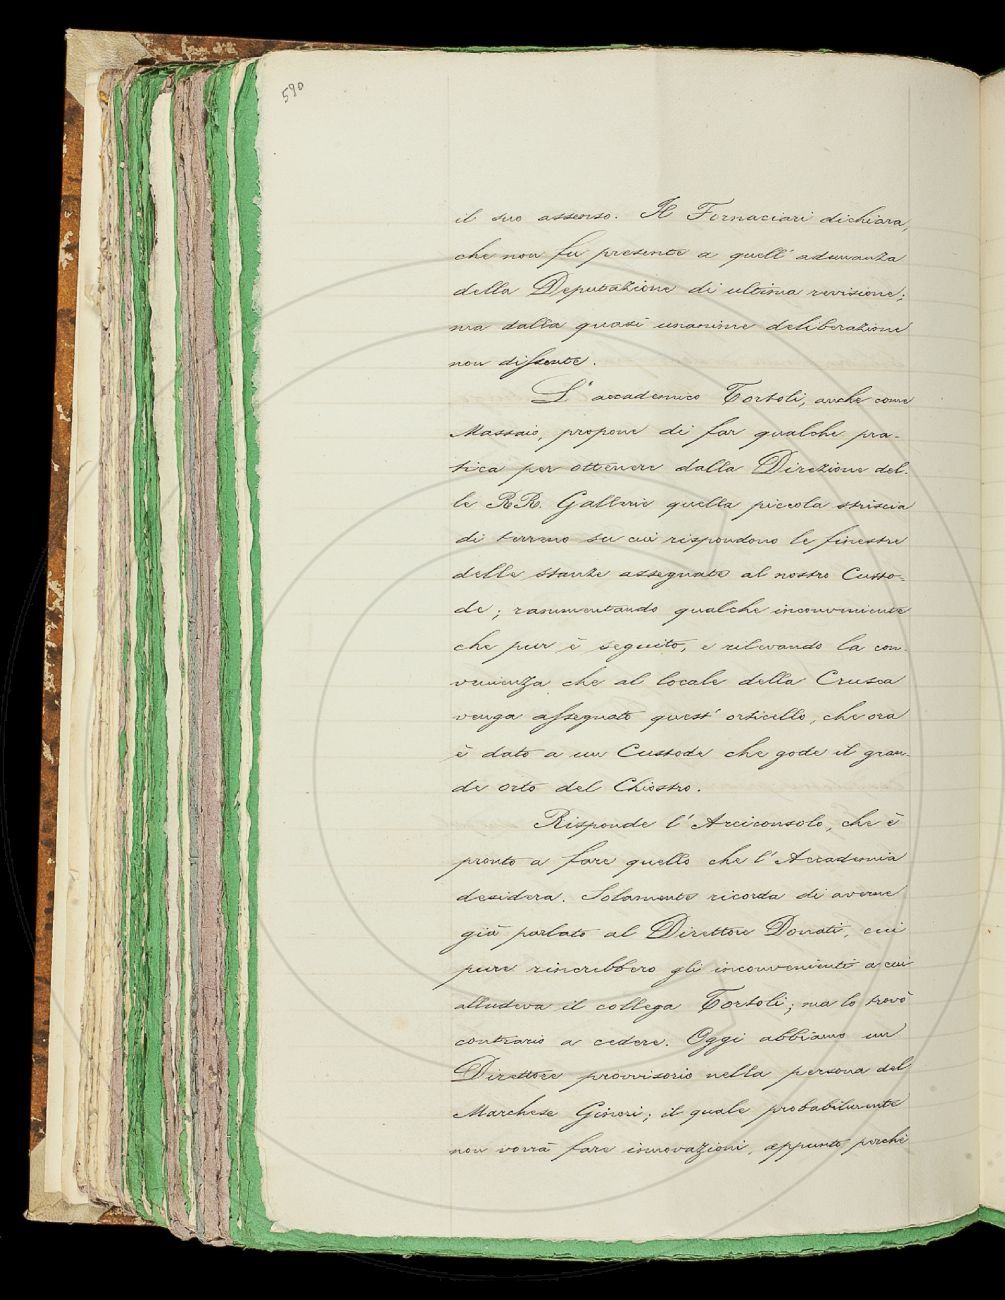 590
il suo assenso. Il Fornaciari dichiara,
che non fu presente a quell' adunanza
della Deputazione di ultima revisione;
ma dalla quasi unanime deliberazione
non dissente.
L' accademico Tortoli, anche come
Massaio, propone di far qualche pra-
tica per ottenere dalla Direzione del-
le RR. Gallerie quella piccola striscia
di terreno su cui rispondono le finestre
delle stanze assegnate al nostro Custo-
de; rammentando qualche inconveniente
che pur è seguito, e rilevando la con-
venienza che al locale della Crusca
venga assegnato quest' orticello, che ora
è dato a un Custode che gode il gran-
de orto del Chiostro.
Risponde l' Arciconsolo, che è
pronto a fare quello che l' Accademia
desidera. Solamente ricorda di averne
già parlato al Direttore Donati, cui
pure rincrebbero gli inconvenienti a cui
alludeva il collega Tortoli; ma lo trovò
contrario a cedere. Oggi abbiamo un
Direttore provvisorio nella persona del
Marchese Ginori; il quale probabilmente
non vorrà fare innovazioni, appunto perché